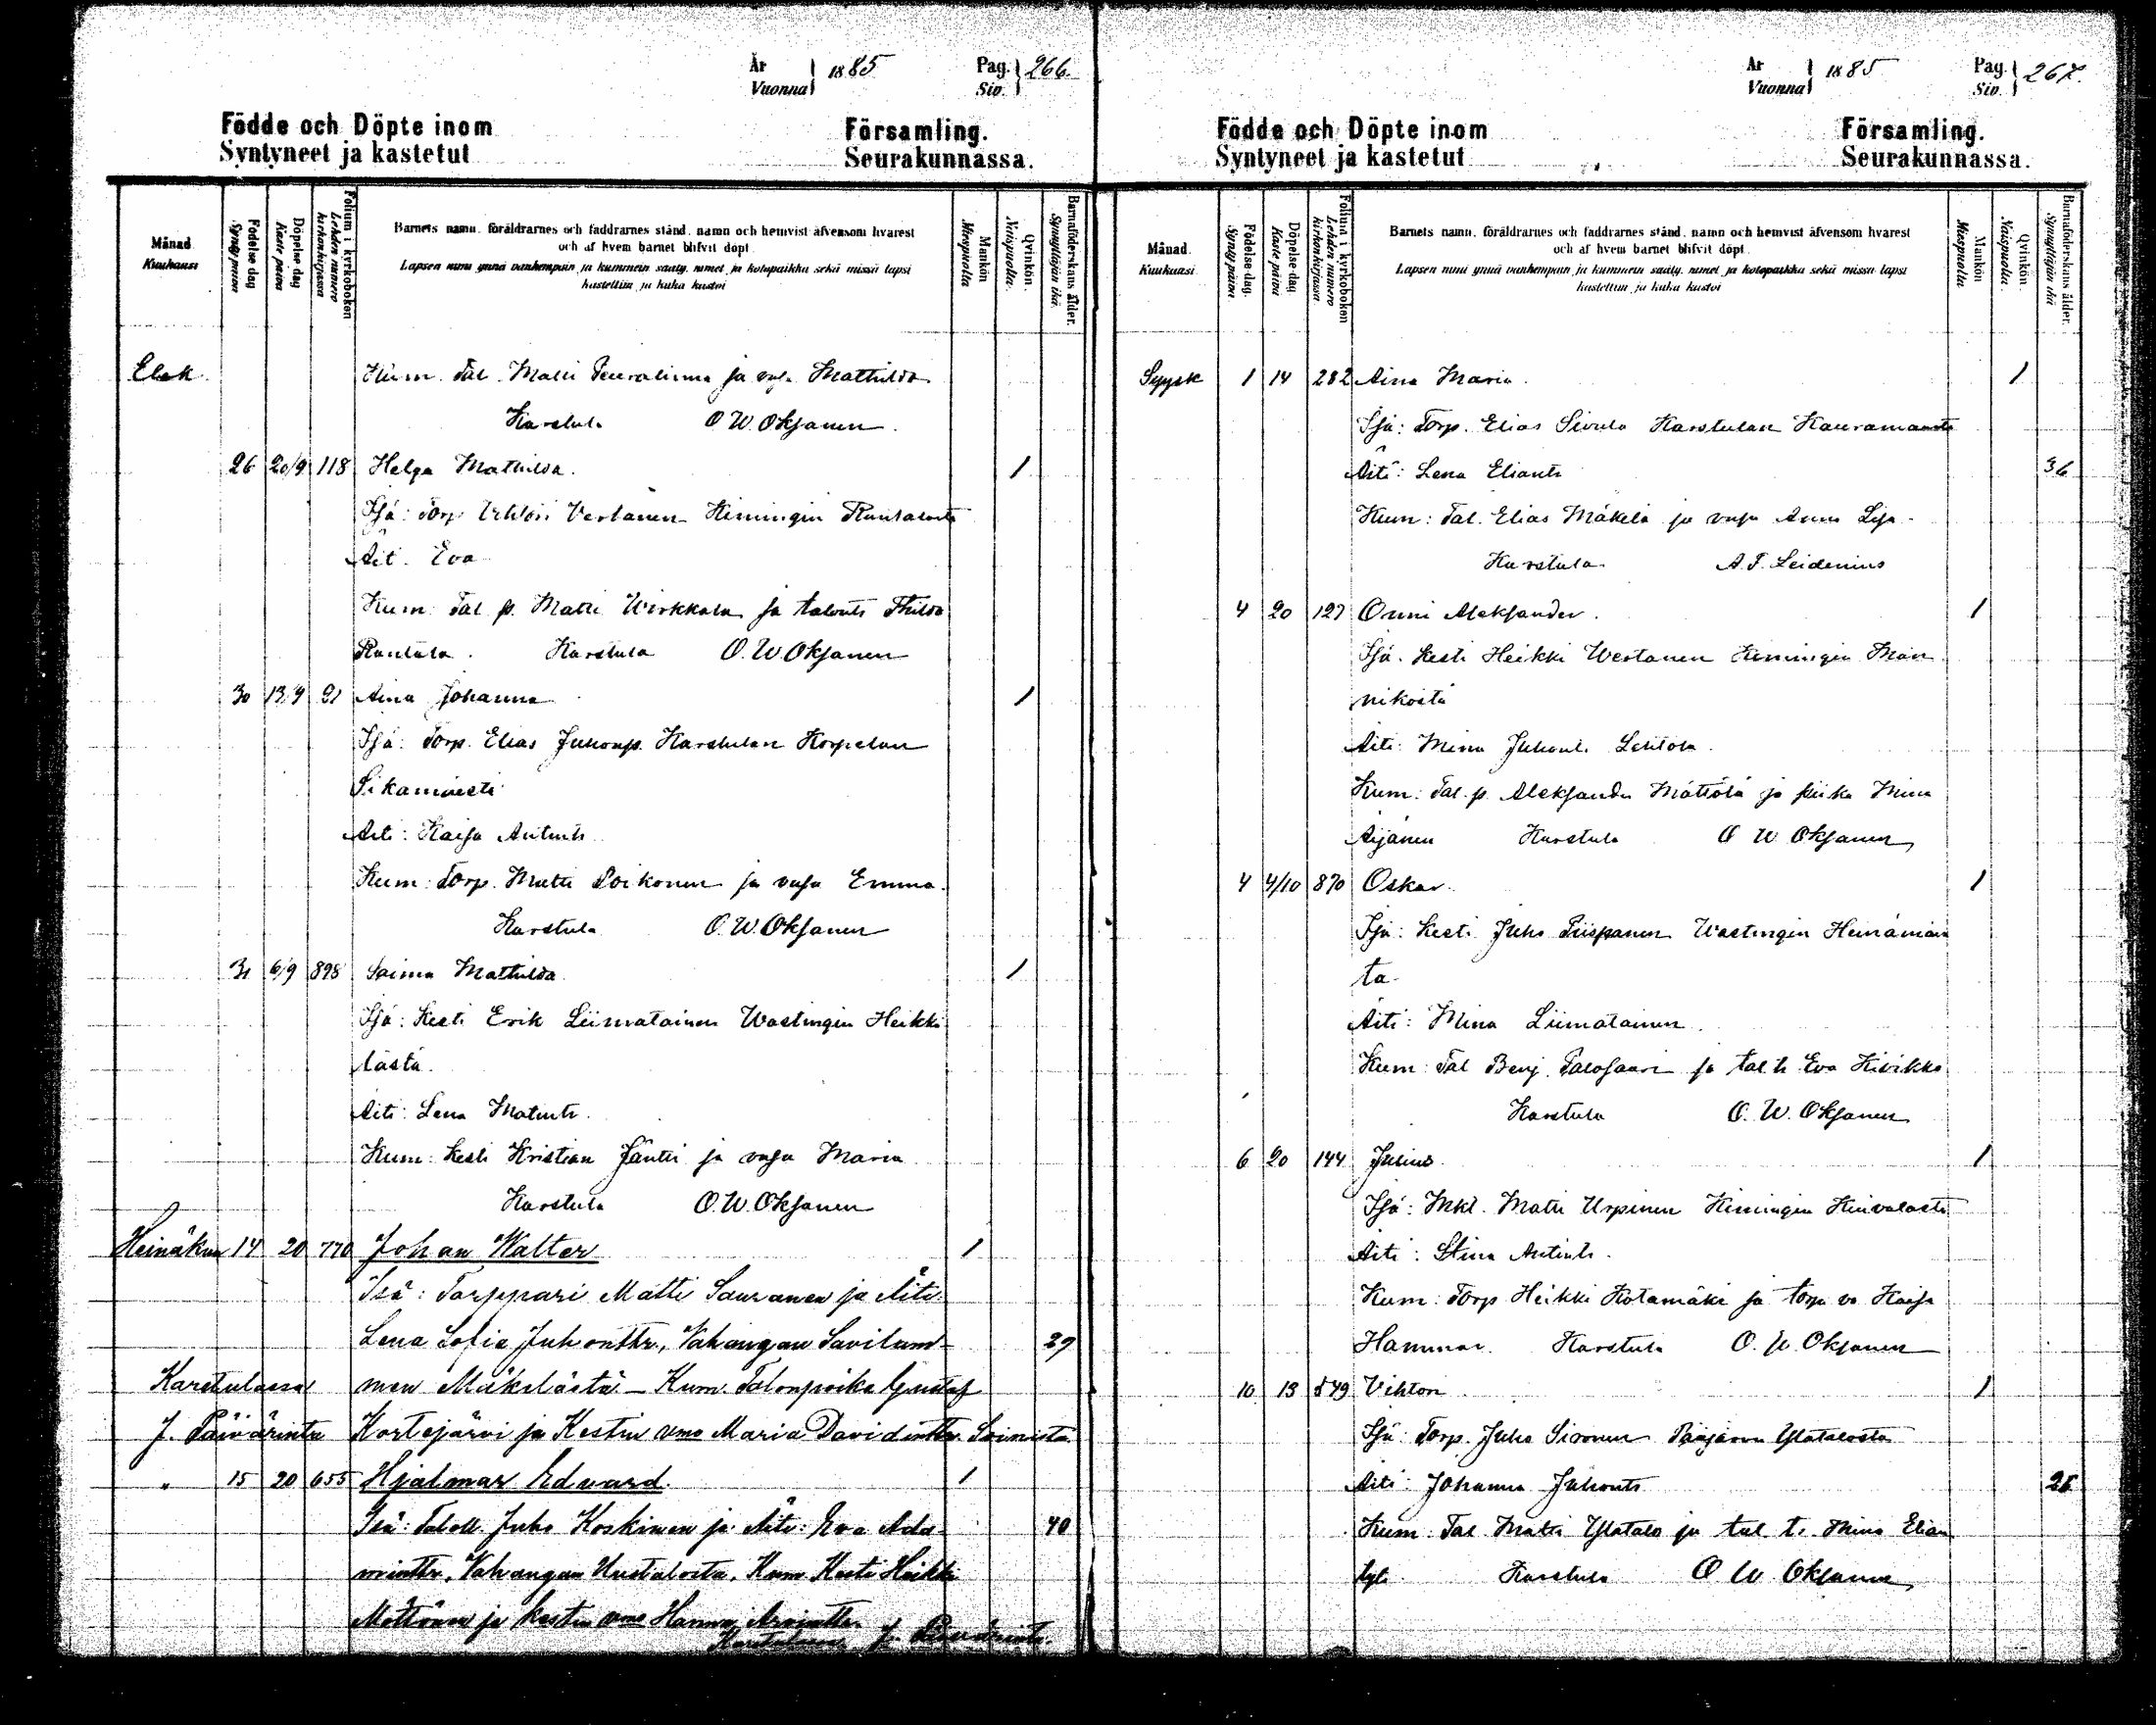 År
Vuonna
1885
Pag.
Siv.
266.
Födde och Döpte inom Församling.
Syntyneet ja kastetut Seurakunnassa.
Månad. Kuukausi
Födelse dag Synty päivä
Döpelse dag Kaste päivä
Folium i kyrkoboken Lehden numero kirkonkirjassa
Barnets namn, föräldrarnes och faddrarnes stånd, namn och hemvist äfvensom hvarest
och af hvem barnet blifvit döpt.
Lapsen nimi ynnä vanhempain ja kummein sääty, nimet ja kotopaikka sekä missä lapsi
kastettiin ja kuka kastoi
Mankön Miespuolia
Qvinkön. Naispuolia.
Barnaföderskans ålder. Synnyttäjän ikä
Elok. Kum. Tal. Matti Peuralinna ja vaja Mathilda
Karstula O W. Oksanen.
26 20/9 118 Helga Mathilda. 1
Isä: Torp. Vihtori Vertanen Kimingin Rantalasta
Äit. Eva
Kum: Tal. p. Matti Wirkkala ja talonts Thilda
Rantala. Karstula O. W. Oksanen
30 13/9 91 Aina Johanna 1
Isä: Torp. Elias Juhonp. Karstulan Korpelan
Sikamiesti
Äiti: Kaisa Antints
Kum: Torp. Matti Poikonen ja vaja Emma.
Karstula O. W. Oksanen
31 6/9 898 Saima Mathilda 1
Isä: Kesti Erik Liimatainen Wastingin Heikki
lästä.
Äiti: Lena Matints.
Kum: Kesti Kristian Jäntti ja vaja Maria
Karstula O. W. Oksanen
Heinäkuu 14 20 770 Johan Walter 1
Isä: Torppari Matti Sauranen ja Äiti:
Lena Sofia Juhontr., Vahangan Savilam- 29
Karstulassa men Mäkelästä – Kum. Talonpoika Gustaf
J. Päivärinta Kortejärvi ja Kestin vmo Maria Davidintr. Soinista
" 15 20 655 Hjalmar Edvard. 1
Isä: Taloll. Juho Koskinen ja Äiti: Eva Ada- 40
mintr. Vahangan Uustalosta. Kum. Kesti Heikki
Möttönen ja kestin vmo Hanna
Karstulassa J. Päivärinta.
År
Vuonna
1885
Pag.
Siv.
267.
Födde och Döpte inom Församling.
Syntyneet ja kastetut Seurakunnassa.
Månad. Kuukausi.
Födelse dag. Synty päivä
Döpelse dag Kaste päivä
Folium i kyrkoboken Lehden numero kirkonkirjassa
Barnets namn, föräldrarnes och faddrarnes stånd, namn och hemvist äfvensom hvarest
och af hvem barnet blifvit döpt.
Lapsen nimi ynnä vanhempain ja kummein sääty, nimet ja kotopaikka sekä missä lapsi
kastettiin ja kuka kastoi
Mankön Miespuolia
Qvinkön Naispuolia.
Barnaföderskans ålder. Synnyttäjän ikä
Syysk 1 14 282 Aina Maria. 1
Isä: Torp. Elias Sivula Karstulan
Äiti: Lena Eliants 36
Kum: Tal. Elias Mäkelä ja vaja Anna Lisa
Karstula. A. F. Leidenius
4 20 127 Onni Aleksander. 1
Isä. Kesti Heikki Wertanen Kimingin Män
niköstä
Äiti: Mina Juhonts Lehtola.
Kum: Tal. p. Aleksander Mättölä ja piika Mina
Äijänen Karstula O W. Oksanen
4 4/10 870 Oskar. 1
Isä: Kesti Juho Piispanen Wastingin Heinämäis
tä.
Äiti: Mina Liimatainen.
Kum: Tal Benj. Talosaari ja tal. ts. Eva Kivikko
Karstula O. W. Oksanen
6 20 144 Julius. 1
Isä: Mkl. Matti Urpinen Kimingin
Äiti: Stina Antints.
Kum: Torp Heikki Kotamäki ja torp. vo Kaisa
Hammar. Karstula O. W. Oksanen
10 13 549 Vihtor. 1
Isä: Torp. Juho Sironen Pääjärven Ylätalosta
Äiti: Johanna Juhonts 25
Kum: Tal Matti Ylätalo ja tal. t. Mina Elian
Karstula O W. Oksanen